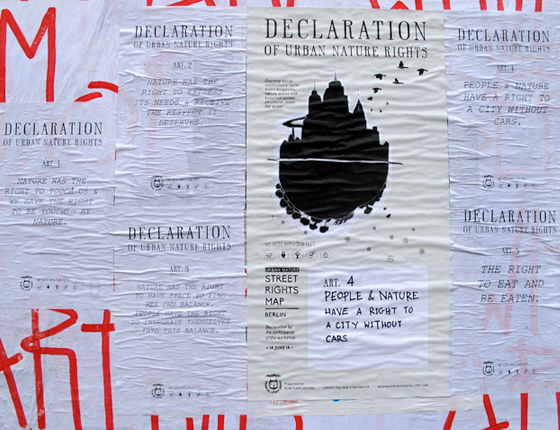 DECLARATION
OF URBAN NATURE RIGHTS
ART. 1
NATURE HAS THE
RIGHT TO TOUCH US &
WE HAVE THE RIGHT
TO BE TOUCHED BY
NATURE.
DECLARATION
OF URBAN NATURE RIGHTS
ART. 2
NATURE HAS THE
RIGHT TO EXPRESS
ITS NEEDS & RECEIVE
THE RESPECT IT
DESERVES.
DECLARATION
OF URBAN NATURE RIGHTS
ART. 3
NATURE HAS THE RIGHT
TO HAVE SPACE TO FIND
HER OWN BALANCE.
PEOPLE HAVE THE RIGHT
TO INTEGRATE THEMSELVES
INTO THIS BALANCE.
DECLARATION
OF URBAN NATURE RIGHTS
URBAN NATURE
STREET
RIGHTS
MAP
BERLIN
Declaration by
the participants
of the workshop
14 JUNE 14
ART. 4
PEOPLE & NATURE
HAVE A RIGHT TO
A CITY WITHOUT
CARS
DECLARATION
OF URBAN NATURE RIGHTS
ART. 4
PEOPLE & NATURE
HAVE A RIGHT TO
A CITY WITHOUT
CARS.
DECLARATION
OF URBAN NATURE RIGHTS
ART. 5
THE RIGHT
TO EAT AND
BE EATEN.